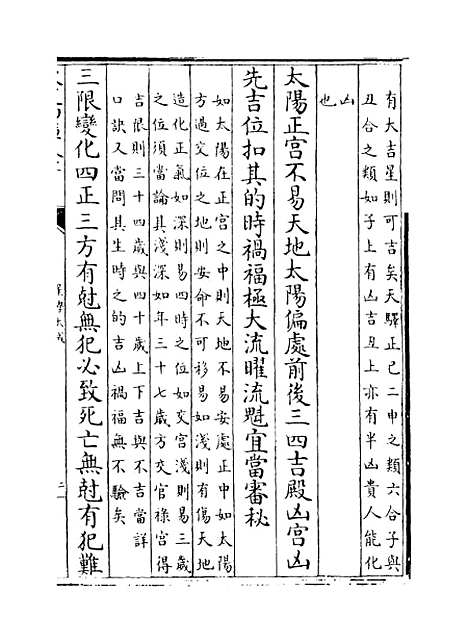 有大吉星則可吉矣天驛正己二申之類六合子與
丑合之類如子上有凶吉丑上亦有半凶貴人能化
凶
也
太陽正宫不易天地太陽偏處前後三四吉殿凶宫凶
先吉位扣其的時禍福極大流曜流魁宜當審秘
如太陽在正宫之中則天地不易安處正中如太陽
方過交位之地則安命不可移易如淺則有傷天地
造化正氣如深則易四時之位如交宫淺則易三歲
之位須當論其淺深如年三十七歲方交官祿宫得
吉限則三十四歲與四十歲上下吉與不吉當詳
口訣又當問其生時之的吉凶禍福無不驗矣
三限變化四正三方有尅無犯必致死亡無尅有犯難
星學大成